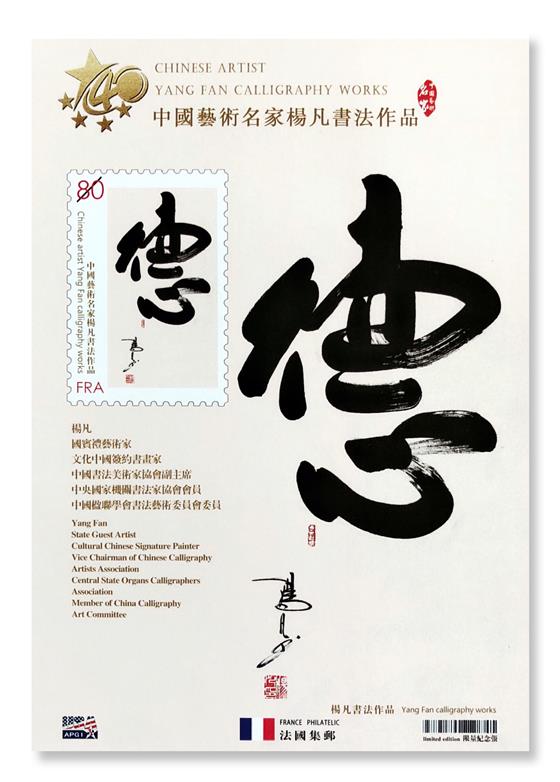 140
CHINESE ARTIST
YANG FAN CALLIGRAPHY WORKS
中國藝術名家楊凡書法作品
80
Chinese artist Yang Fan calligraphy works
中國藝術名家楊凡書法作品
德
楊凡
FRA
德
楊凡
楊凡
國賓禮藝術家
文化中國簽約書畫家
中國書法美術家協會副主席
中央國家機關書法家協會會員
中國楹聯學會書法藝術委員會委員
Yang Fan
State Guest Artist
Cultural Chinese Signature Painter
Vice Chairman of Chinese Calligraphy
Artists Association
Central State Organs Calligraphers
Association
Member of China Calligraphy
Art Committee
楊凡書法作品 Yang Fan calligraphy works
APGI
FRANCE PHILATELIC
法國集郵
limited edition 限量紀念張